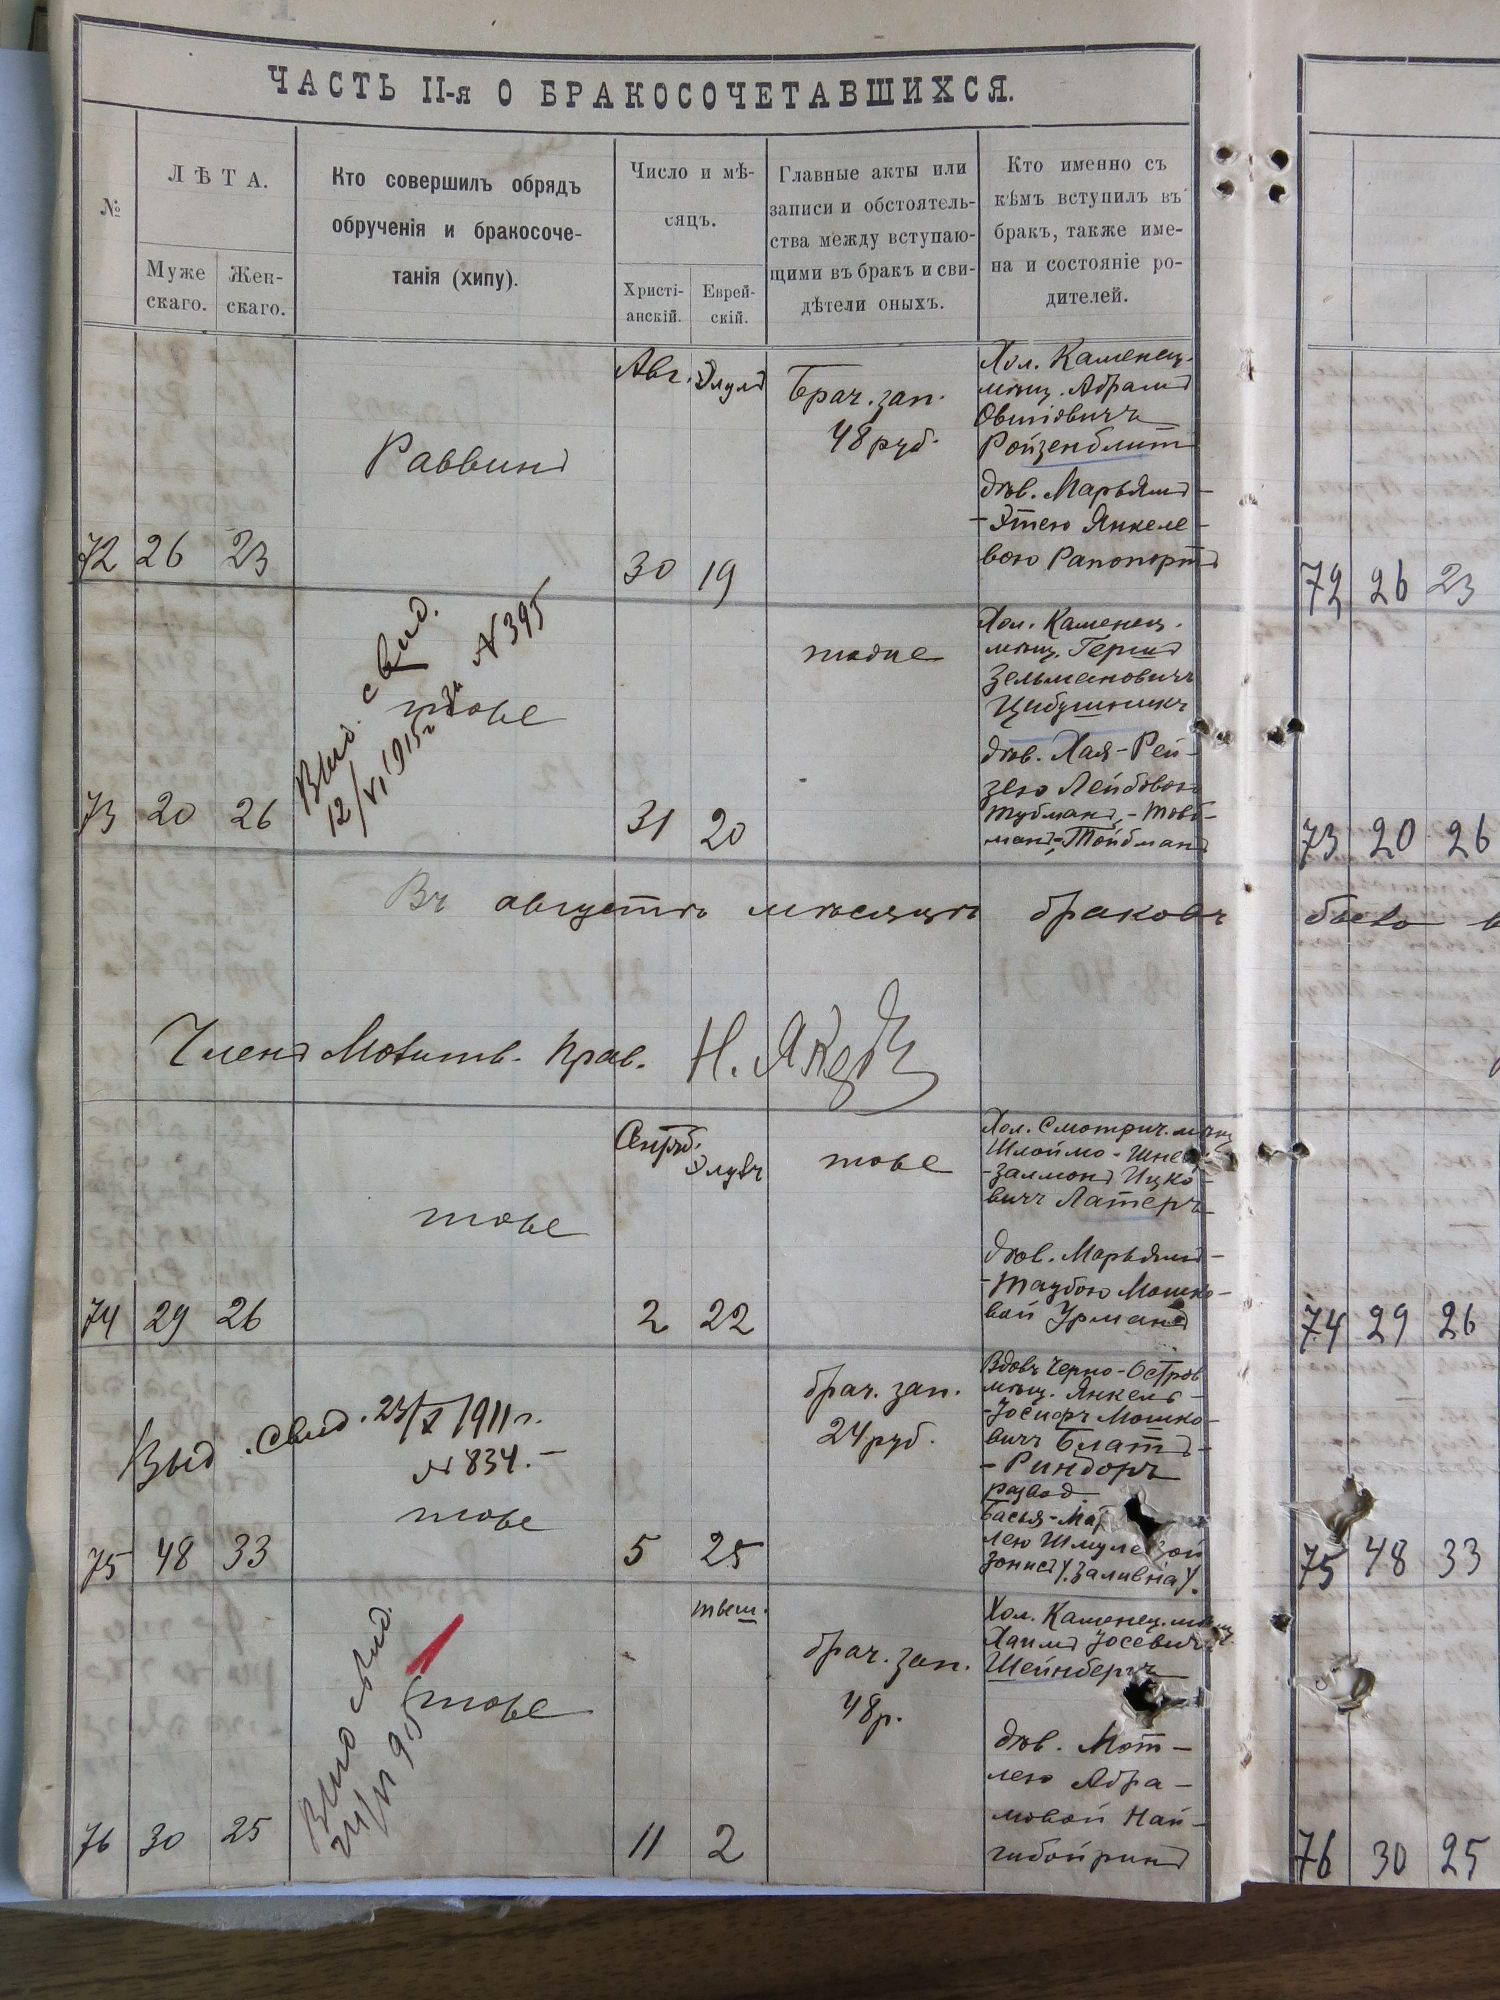 ЧАСТЬ II-я О БРАКОСОЧЕТАВШИХСЯ.
№
ЛѢТА.
Муже
скаго.
Жен-
скаго.
Кто совершилъ обрядъ
обрученія и бракосоче-
танія (хипу).
Число и мѣ-
сяцъ.
Христі-
анскій.
Еврей-
скій.
Главные акты или
записи и обстоятель-
ства между вступаю-
щими въ бракъ и сви-
дѣтели оныхъ.
Кто именно съ
кѣмъ вступилъ въ
бракъ, также име-
на и состояніе ро-
дителей.
72 26 23
Раввинъ
Авг. Элулъ
30 19
Брач. зап.
48 руб.
Хол. Каменец.
мѣщ. Абрамъ
Овшіовичъ
Ройзенблитъ
дѣв. Марьямъ-
-Этею Янкеле-
вою Рапопортъ
72 26 23
73 20 26
Выд. свид.
12/VI 1915 г. за № 395
тоже
31 20
тоже
Хол. Каменец.
мѣщ. Гершъ
Зельмановичъ
Цибушникъ
дѣв. Хая-Рей-
зею Лейбовою
Тубманъ,-Товб-
манъ,-Тойбманъ
73 20 26
Въ августѣ мѣсяцѣ браковъ было
Членъ Молитв. Прав.
74 29 26
тоже
Сентяб. Элулъ
2 22
тоже
Хол. Смотрич. мѣщ
Шлоймо-Шнеер-
-Залмонъ Ицко-
вичъ Латеръ
дѣв. Марьямъ-
-Таубою Мошко-
вой Урманъ
74 29 26
75 48 33
Выд. свид. 23/X 1911 г.
№ 834.-
тоже
5 25
брач. зап.
24 руб.
Вдовъ Черно-Остров
мѣщ. Янкель-
-Іосифъ Мошко-
вичъ Блатъ-
-Риндоръ
развод.
Басья-
лею Шмулевой
75 48 33
76 30 25
Выд свид.
24/VI 95
тоже
тиш.
11 2
брач. зап.
48 р.
Хол. Каменец. мѣщ.
Хаимъ Іосевичъ
Шейнбергъ
дѣв. Мот-
лею Абра-
мовой Най-
гибойринъ
76 30 25